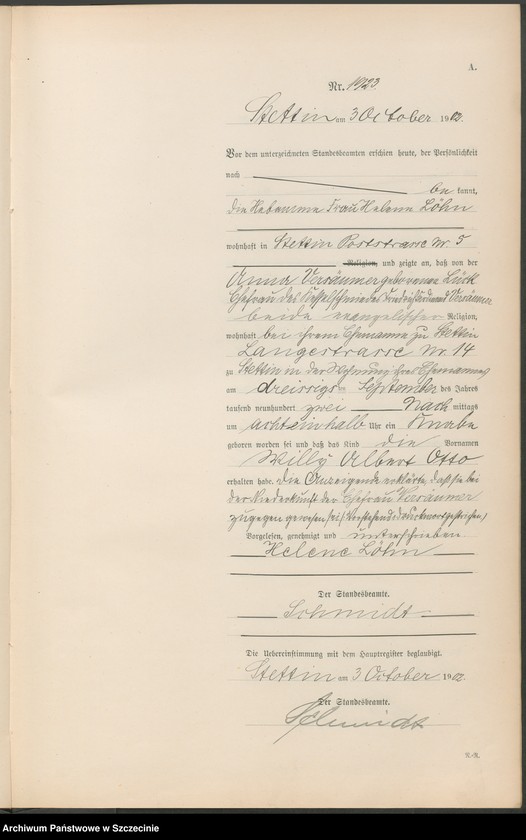 A.
Nr. 1923.
Stettin am 3 October 1902.
Vor dem unterzeichneten Standesbeamten erschien heute, der Persönlichkeit
nach
be kannt,
die Hebamme Frau Helene Löhn
wohnhaft in Stettin Poststrasse Nr 5
Religion, und zeigte an, daß von der
Anna Versäumer geborenen Lück
Ehefrau des Kesselschmiedes Friedrich Versäumer
beide evangelischer Religion,
wohnhaft bei ihrem Ehemanne zu Stettin
Langestrasse Nr. 14
zu Stettin in der Wohnung ihres Ehemannes
am dreissigsten September des Jahres
tausend neunhundert zwei Nach mittags
um achteinhalb Uhr ein Knabe
geboren worden sei und daß das Kind die Vornamen
Willy Albert Otto
erhalten habe. Die Anzeigende erklärte, daß sie bei
der Niederkunft der Ehefrau Versäumer
zugegen gewesen sei (Vorstehend 1 Druckwort gestrichen)
Vorgelesen, genehmigt und unterschrieben
Helene Löhn
Der Standesbeamte.
Schmidt
Die Uebereinstimmung mit dem Hauptregister beglaubigt.
Stettin am 3 October 1902.
Der Standesbeamte.
Schmidt
Archiwum Państwowe w Szczecinie